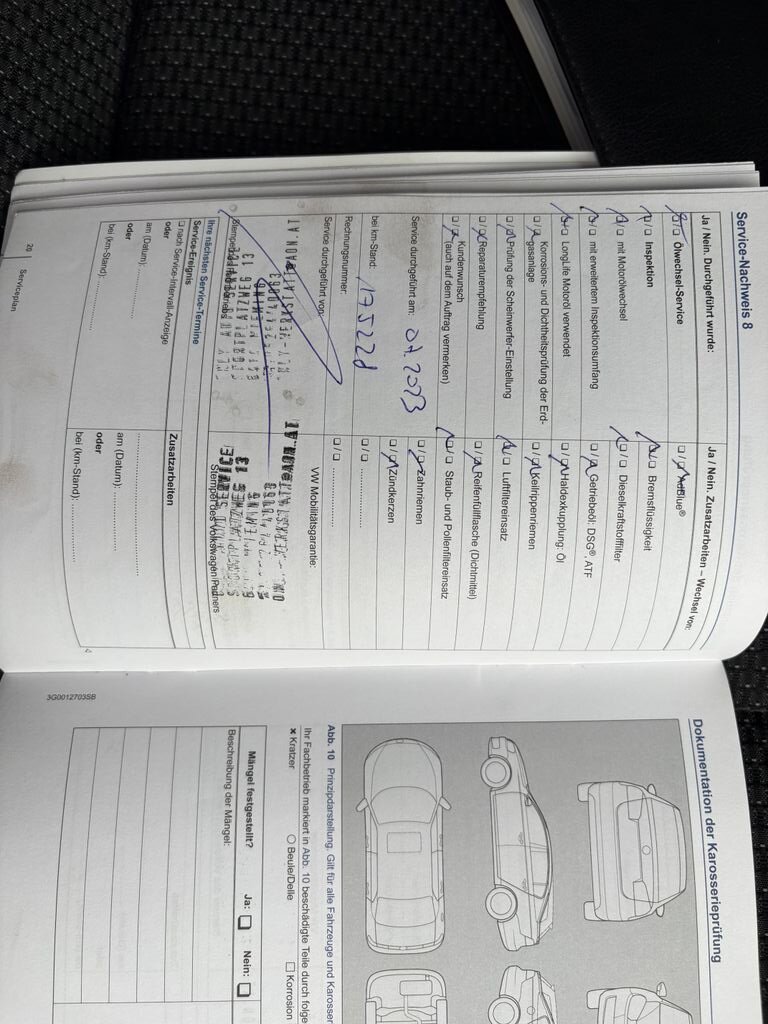 Service-Nachweis 8
Ja / Nein. Durchgeführt wurde:
Ölwechsel-Service
Inspektion
mit Motorölwechsel
mit erweitertem Inspektionsumfang
LongLife Motoröl verwendet
Korrosions- und Dichtheitsprüfung der Erd-
gasanlage
Prüfung der Scheinwerfer-Einstellung
Reparaturempfehlung
Kundenwunsch
(auch auf dem Auftrag vermerken)
Service durchgeführt am: 07.2023
bei km-Stand: 175221
Rechnungsnummer:
Service durchgeführt von:
Ja / Nein. Zusatzarbeiten – Wechsel von:
AdBlue®
Bremsflüssigkeit
Dieselkraftstofffilter
Getriebeöl: DSG® ATF
Haldexkupplung: Öl
Keilrippenriemen
Luftfiltereinsatz
Reifenfüllflasche (Dichtmittel)
Staub- und Pollenfiltereinsatz
Zahnriemen
Zündkerzen
VW Mobilitätsgarantie:
Stempel des Volkswagen Partners
Ihre nächsten Service-Termine
Service-Ereignis
nach Service-Intervall-Anzeige
oder
am (Datum):
oder
bei (km-Stand):
Zusatzarbeiten
am (Datum):
oder
bei (km-Stand):
20 Serviceplan
3G0012703SB
Dokumentation der Karosserieprüfung
Abb. 10 Prinzipdarstellung. Gilt für alle Fahrzeuge und Karosser
Ihr Fachbetrieb markiert in Abb. 10 beschädigte Teile durch folge
× Kratzer ○ Beule/Delle □ Korrosion
Mängel festgestellt? Ja: Nein:
Beschreibung der Mängel: